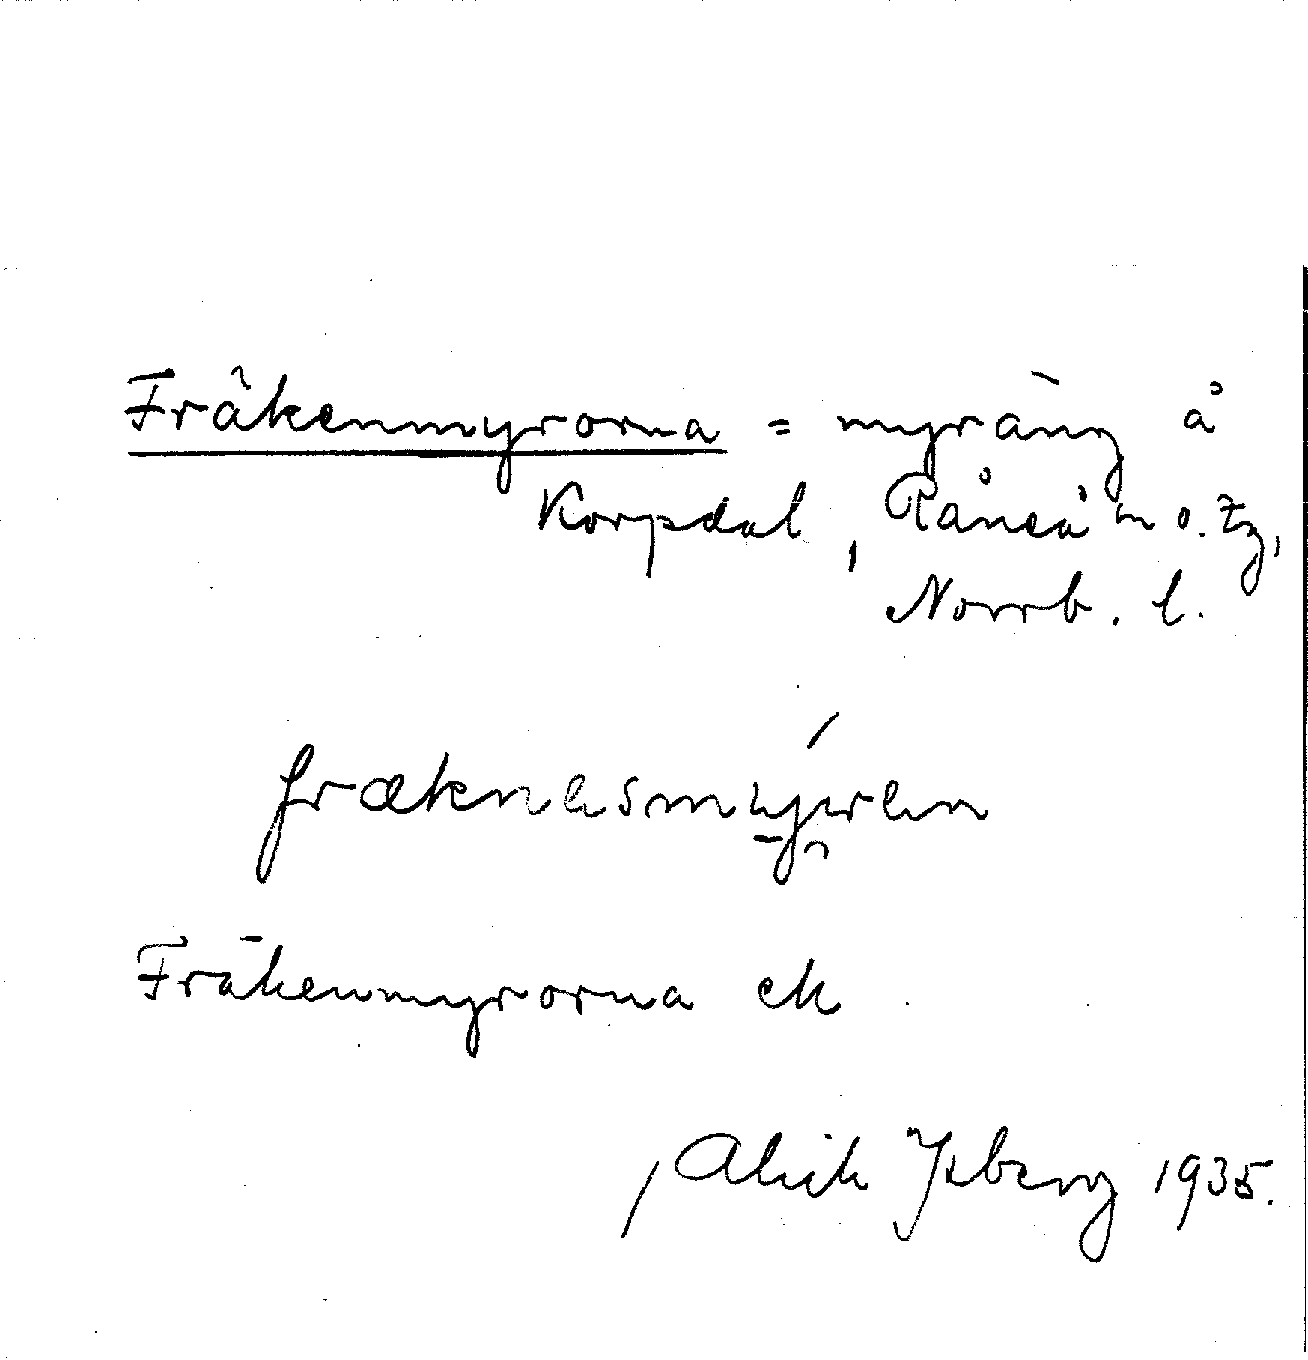 Fräkenmyrorna = myräng å
Korpdal, Råneå sn o. tg,
Norrb. l.
fræknasmyren
Fräkenmyrorna ek
Alrik Isberg 1935.